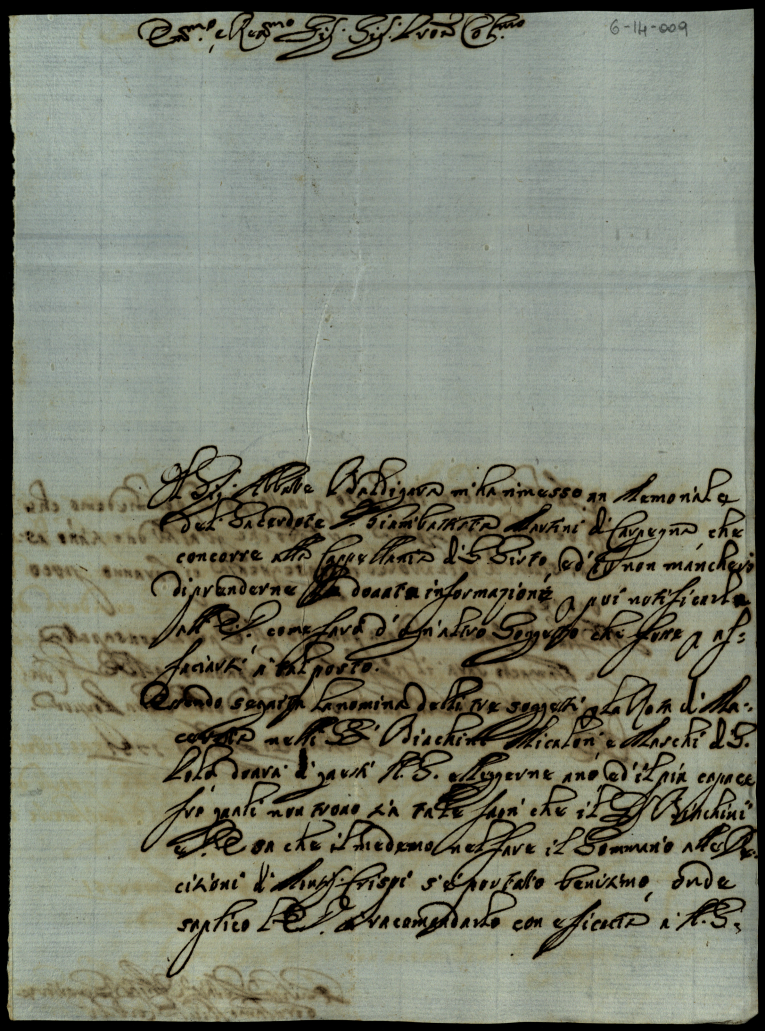 Em.mo e Rev.mo Sig. Sig. Pron Col.mo
6-14-009
Il Sig. Abbate Baldigara m'ha rimesso un Memoriale
del Sacerdote Giambattista Martini di Carpegna che
concorre alla Cappellania di S. Sisto, ed io non mancherò
di prenderne le dovute informazioni p poi notificarle
all'E.V. come farò d'ogn'altro Soggetto che fosse p af=
facciarsi a tal posto.
Essendo seguita la nomina delli tre soggetti p la Rota di Ma=
cerata nelli SS.i Biachini Micaloni e Marchi di S.
dovrà di questi N.S. elleggerne uno ed il più capace
frà quali non trovo sia tale fuori che il Sig. Biachini
e che il medemo nel fare il Sommario alle De=
cisioni di Mons. Crispi s'è portato benissimo, onde
suplico L'E.V. a racomandarlo con eficacia a N.S.